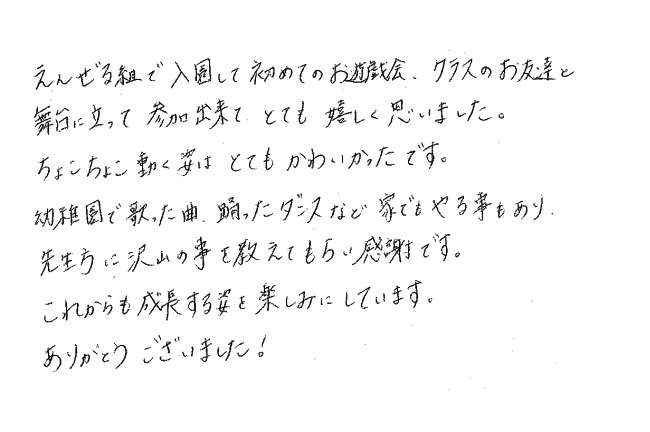 えんぜる組で入園して初めてのお遊戯会、クラスのお友達と
舞台に立って参加出来てとても嬉しく思いました。
ちょこちょこ動く姿はとてもかわいかったです。
幼稚園で歌った曲、踊ったダンスなど家でもやる事もあり、
先生方に沢山の事を教えてもらい感謝です。
これからも成長する姿を楽しみにしています。
ありがとうございました!